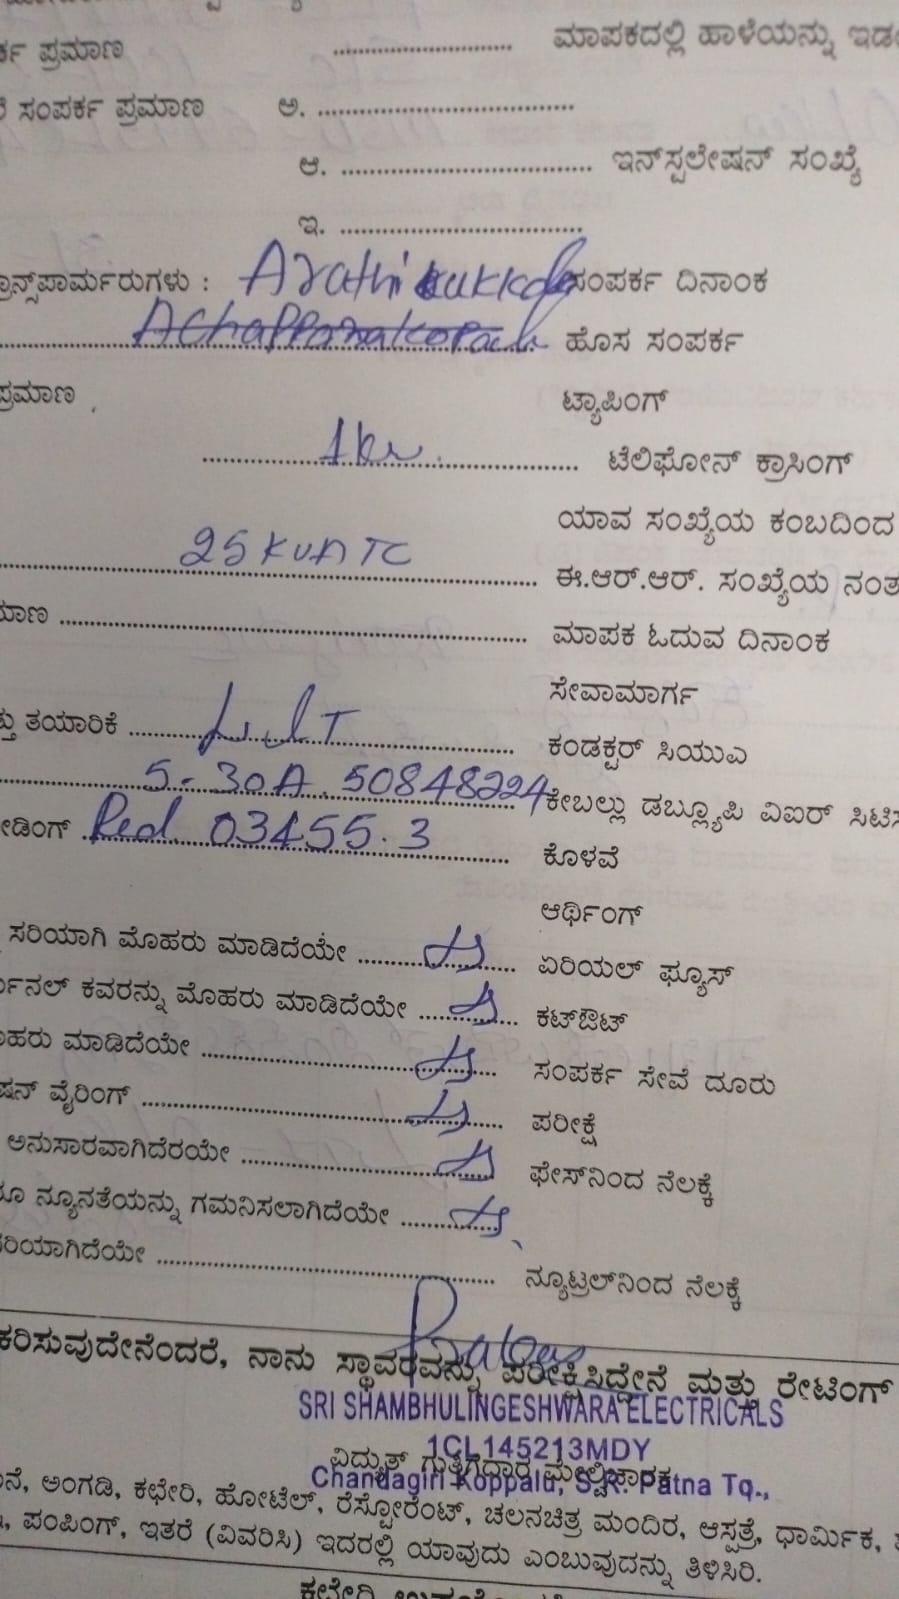 ರ್ಕ ಪ್ರಮಾಣ .................... ಮಾಪಕದಲ್ಲಿ ಹಾಳೆಯನ್ನು ಇಡ
ಸಂಪರ್ಕ ಪ್ರಮಾಣ ಅ. ....................
ಆ. .................... ಇನ್‌ಸ್ಪಲೇಷನ್ ಸಂಖ್ಯೆ
ಇ. ....................
ರಾನ್ಸ್‌ಪಾರ್ಮರುಗಳು : Arathi ಸಂಪರ್ಕ ದಿನಾಂಕ
.................... ಹೊಸ ಸಂಪರ್ಕ
ಪ್ರಮಾಣ ಟ್ಯಾಪಿಂಗ್
.................... ಟೆಲಿಫೋನ್ ಕ್ರಾಸಿಂಗ್
ಯಾವ ಸಂಖ್ಯೆಯ ಕಂಬದಿಂದ
25 KVA TC ಈ.ಆರ್.ಆರ್. ಸಂಖ್ಯೆಯ ನಂತ
ಮಾಣ .................... ಮಾಪಕ ಓದುವ ದಿನಾಂಕ
ಸೇವಾಮಾರ್ಗ
ತ್ತು ತಯಾರಿಕೆ L&T ಕಂಡಕ್ಟರ್ ಸಿಯುಎ
5-30A. 50848224 ಕೇಬಲ್ಲು ಡಬ್ಲ್ಯೂಪಿ ವಿಐರ್ ಸಿಟಿಸ
ೀಡಿಂಗ್ Red 03455.3 ಕೊಳವೆ
ಆರ್ಥಿಂಗ್
ಸರಿಯಾಗಿ ಮೊಹರು ಮಾಡಿದೆಯೇ .................... ಏರಿಯಲ್ ಫ್ಯೂಸ್
ರ್ಮಿನಲ್ ಕವರನ್ನು ಮೊಹರು ಮಾಡಿದೆಯೇ .................... ಕಟ್‌ಔಟ್
ೊಹರು ಮಾಡಿದೆಯೇ .................... ಸಂಪರ್ಕ ಸೇವೆ ದೂರು
ಷನ್ ವೈರಿಂಗ್ .................... ಪರೀಕ್ಷೆ
ಅನುಸಾರವಾಗಿದೆರಯೇ .................... ಫೇಸ್‌ನಿಂದ ನೆಲಕ್ಕೆ
ನ್ಯೂನತೆಯನ್ನು ಗಮನಿಸಲಾಗಿದೆಯೇ ....................
ರಿಯಾಗಿದೆಯೇ .................... ನ್ಯೂಟ್ರಲ್‌ನಿಂದ ನೆಲಕ್ಕೆ
ಕರಿಸುವುದೇನೆಂದರೆ, ನಾನು ಸ್ಥಾವರವನ್ನು ಪರೀಕ್ಷಿಸಿದ್ದೇನೆ ಮತ್ತು ರೇಟಿಂಗ್
SRI SHAMBHULINGESHWARA ELECTRICALS
1CL145213MDY
ವಿದ್ಯುತ್ ಗುತ್ತಿಗೆದಾರ ಮೇಲ್ವಿಚಾರಕ
Chandagiri Koppalu, S.R. Patna Tq.,
ನೆ, ಅಂಗಡಿ, ಕಛೇರಿ, ಹೋಟೆಲ್, ರೆಸ್ಟೋರೆಂಟ್, ಚಲನಚಿತ್ರ ಮಂದಿರ, ಆಸ್ಪತ್ರೆ, ಧಾರ್ಮಿಕ,
ಪಂಪಿಂಗ್, ಇತರೆ (ವಿವರಿಸಿ) ಇದರಲ್ಲಿ ಯಾವುದು ಎಂಬುವುದನ್ನು ತಿಳಿಸಿರಿ.